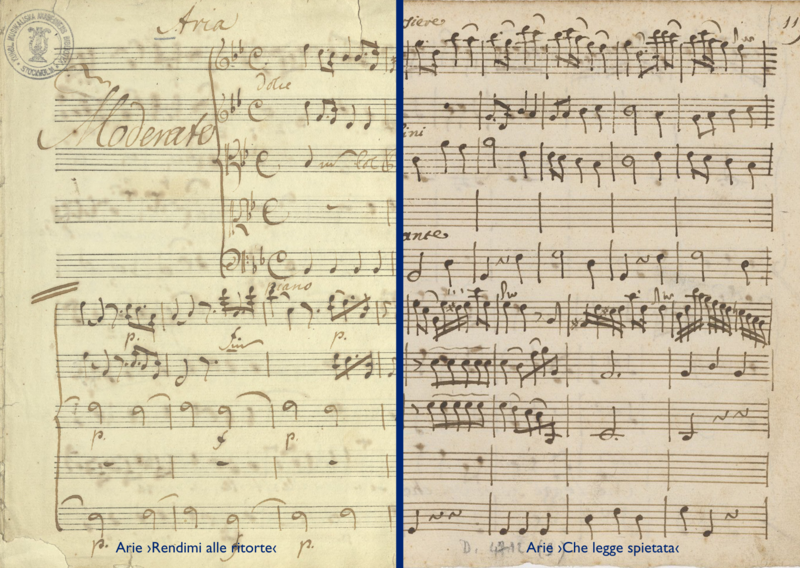 Aria
Moderato
dolce
piano
p.
fin
p.
p.
f
p.
p.
f
p.
Arie ›Rendimi alle ritorte‹
siere
11
ini
ante
Arie ›Che legge spietata‹